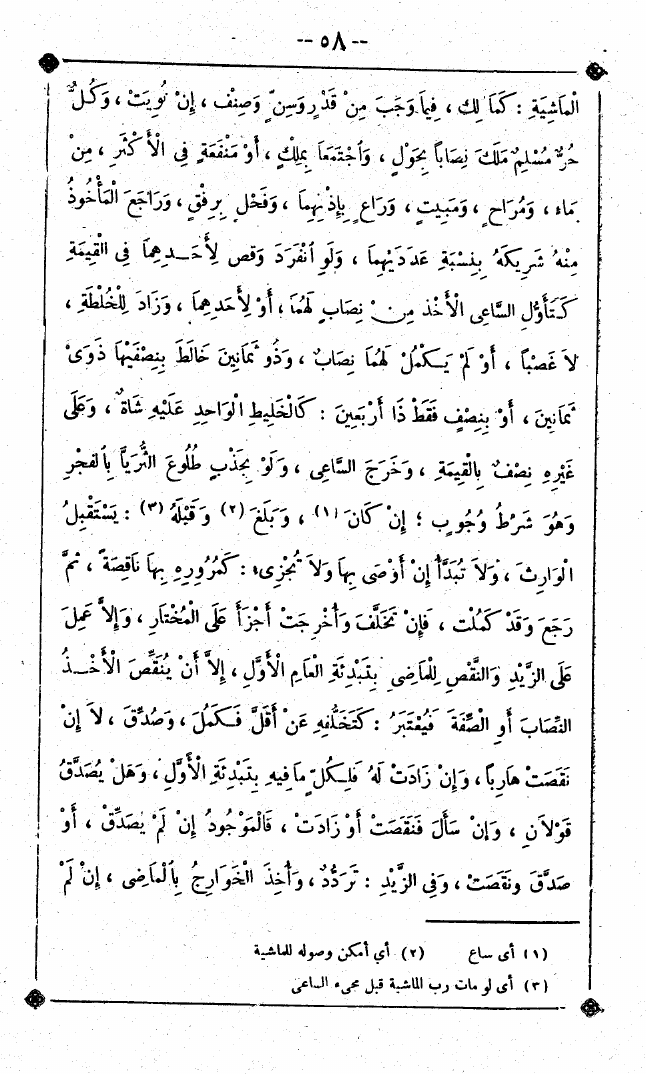 -- ٥٨ --
الْمَاشِيَةِ : كَمَالِكٍ ، فِيمَا وَجَبَ مِنْ قَدْرٍ وَسِنٍّ وَصِنْفٍ ، إِنْ نُوِيَتْ ، وَكُلٌّ
حُرٌّ مُسْلِمٌ مَلَكَ نِصَاباً بِحَوْلٍ ، وَاجْتَمَعَا بِمِلْكٍ ، أَوْ مَنْفَعَةٍ فِي الْأَكْثَرِ ، مِنْ
مَاءٍ ، وَمُرَاحٍ ، وَمَبِيتٍ ، وَرَاعٍ بِإِذْنِهِمَا ، وَفَحْلٍ بِرِفْقٍ ، وَرَاجَعَ الْمَأْخُوذُ
مِنْهُ شَرِيكَهُ بِنِسْبَةِ عَدَدَيْهِمَا ، وَلَوِ انْفَرَدَ وَقْصٌ لِأَحَدِهِمَا فِي الْقِيمَةِ
كَتَأَوُّلِ السَّاعِى الْأَخْذَ مِنْ نِصَابٍ لَهُمَا ؛ أَوْ لِأَحَدِهِمَا ، وَزَادَ لِلْخُلْطَةِ ،
لاَ غَصْباً ، أَوْ لَمْ يَكْمُلْ لَهُمَا نِصَابٌ ، وَذُو ثَمَانِينَ خَالَطَ بِنِصْفَيْهَا ذَوَىْ
ثَمَانِينَ ، أَوْ بِنِصْفٍ فَقَطْ ذَا أَرْبَعِينَ : كَالْخَلِيطِ الْوَاحِدِ عَلَيْهِ شَاةٌ ، وَعَلَى
غَيْرِهِ نِصْفٌ بِالْقِيمَةِ ، وَخَرَجَ السَّاعِى ، وَلَوْ بِجَدْبٍ طُلُوعَ الثُّرَيَّا بِالْفَجْرِ
وَهُوَ شَرْطُ وُجُوبٍ ؛ إِنْ كَانَ (١) ، وَبَلَغَ (٢) وَقَبْلَهُ (٣) : يَسْتَقْبِلُ
الْوَارِثُ ، وَلاَ تُبَدَّأُ إِنْ أَوْصَى بِهَا وَلاَ تُجْزِىءُ : كَمُرُورِهِ بِهَا نَاقِصَةً ، ثُمَّ
رَجَعَ وَقَدْ كَمُلَتْ ، فَإِنْ تَخَلَّفَ وَأُخْرِجَتْ أَجْزَأَ عَلَى الْمُخْتَارِ ، وَإِلاَّ عَمِلَ
عَلَى الزَّيْدِ وَالنَّقْصِ لِلْمَاضِى بِتَبْدِئَةِ الْعَامِ الْأَوَّلِ ، إِلاَّ أَنْ يُنَقِّصَ الْأَخْذُ
النِّصَابَ أَوِ الصِّفَةَ فَيُعْتَبَرُ : كَتَخَلُّفِهِ عَنْ أَقَلَّ فَكَمُلَ ، وَصُدِّقَ ، لاَ إِنْ
نَقَصَتْ هَارِباً ، وَإِنْ زَادَتْ لَهُ فَلِكُلٍّ مَا فِيهِ بِتَبْدِئَةِ الْأَوَّلِ ، وَهَلْ يُصَدَّقُ
قَوْلاَنِ ، وَإِنْ سَأَلَ فَنَقَصَتْ أَوْ زَادَتْ ، فَالْمَوْجُودُ إِنْ لَمْ يُصَدِّقْ ، أَوْ
صَدَّقَ وَنَقَصَتْ ، وَفِى الزَّيْدِ : تَرَدُّدٌ ، وَأُخِذَ الْخَوَارِجُ بِالْمَاضِى ، إِنْ لَمْ
(١) أى ساع (٢) أي أمكن وصوله للماشية
(٣) أى لو مات رب الماشية قبل مجىء الساعى